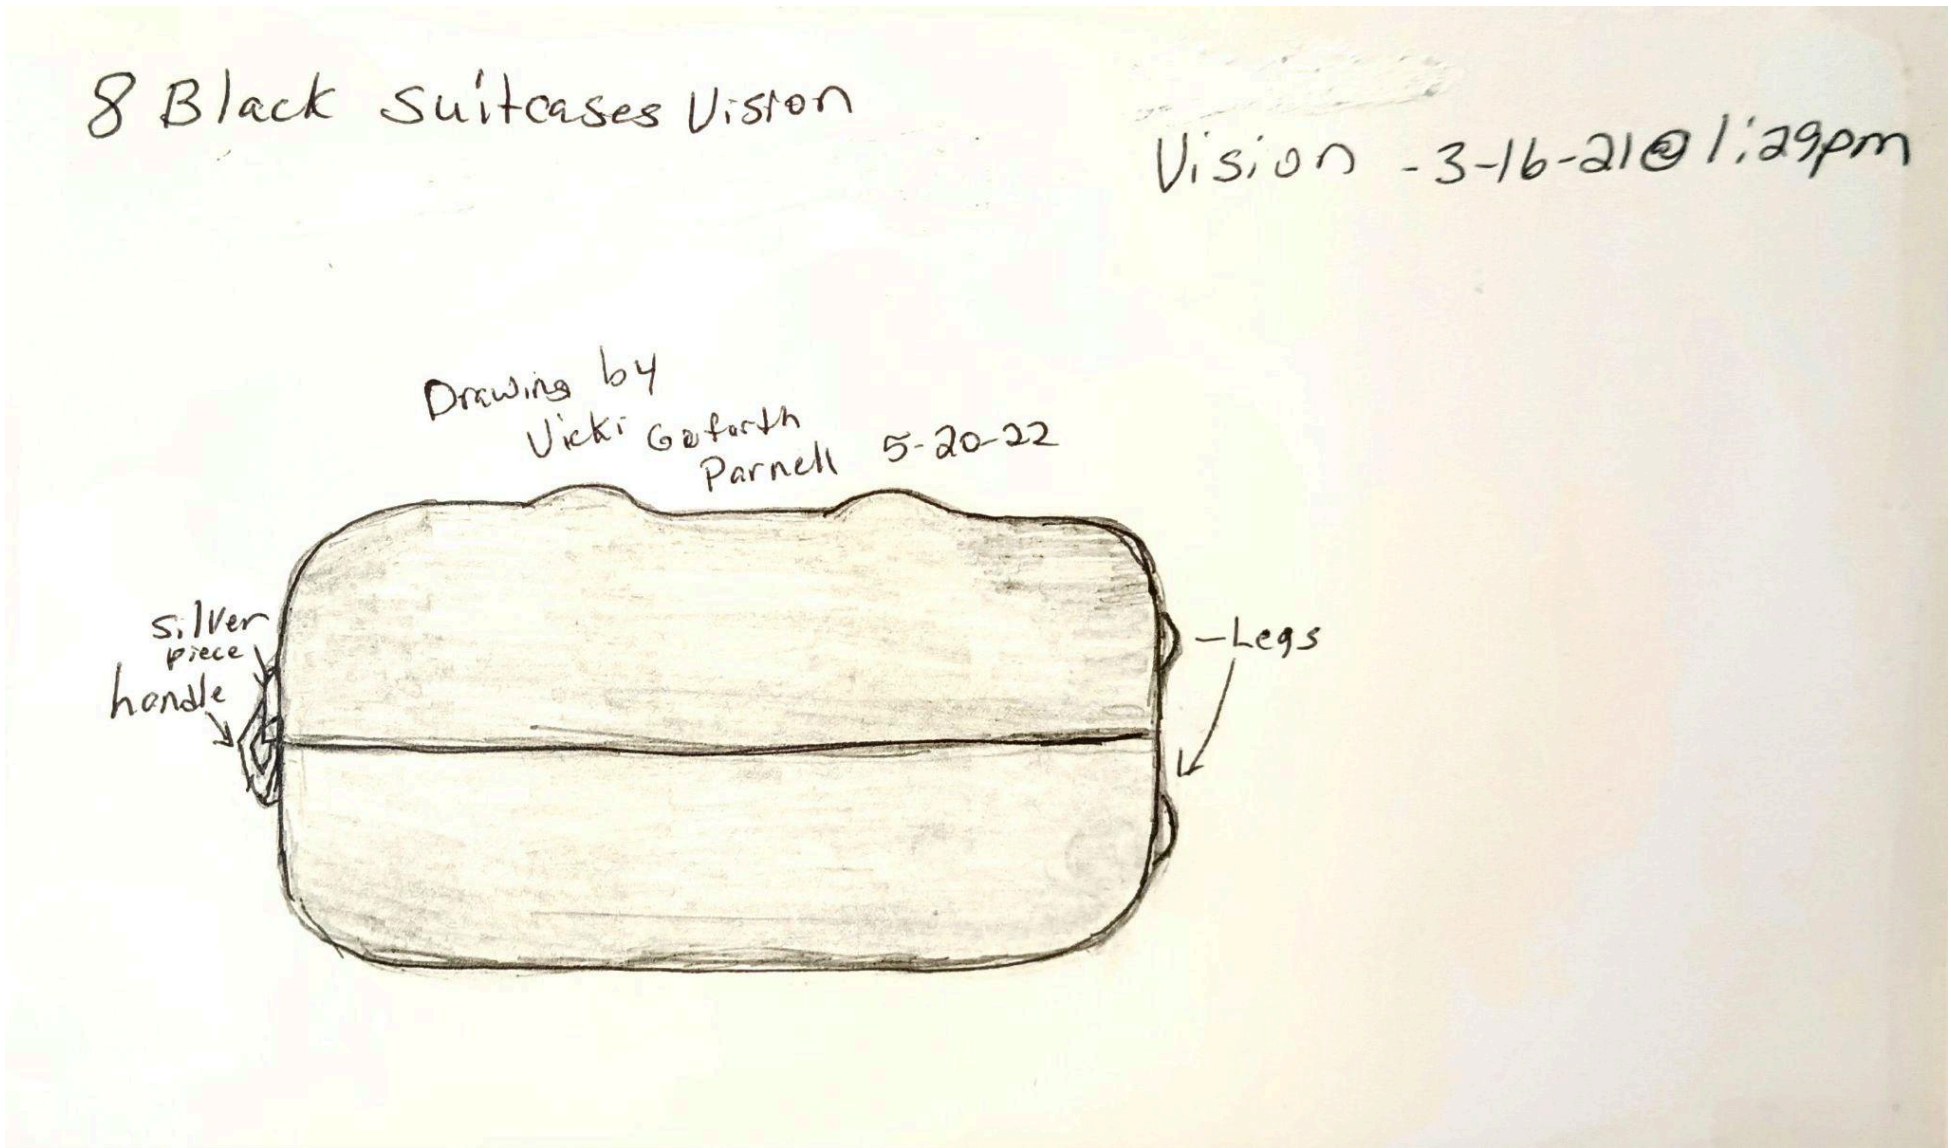 8 Black Suitcases Vision
Vision - 3-16-21@ 1:29pm
Drawing by
Vicki Goforth
Parnell 5-20-22
silver
piece
handle
-Legs